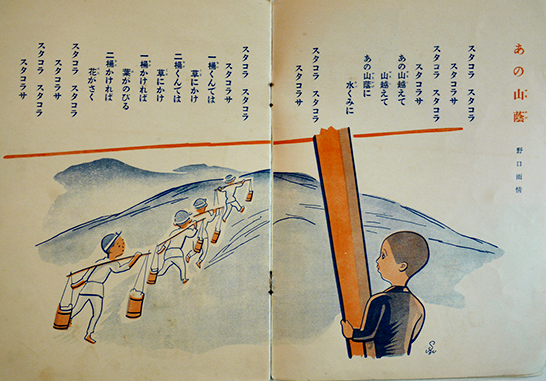 あの山蔭
野口雨情
スタコラ スタコラ
スタコラサ
スタコラ スタコラ
スタコラサ
あの山越えて
山越えて
あの山蔭に
水くみに
スタコラ スタコラ
スタコラ スタコラ
スタコラサ
一桶くんでは
草にかけ
二桶くんでは
草にかけ
一桶かければ
葉がのびる
二桶かければ
花がさく
スタコラ スタコラ
スタコラサ
スタコラ スタコラ
スタコラサ